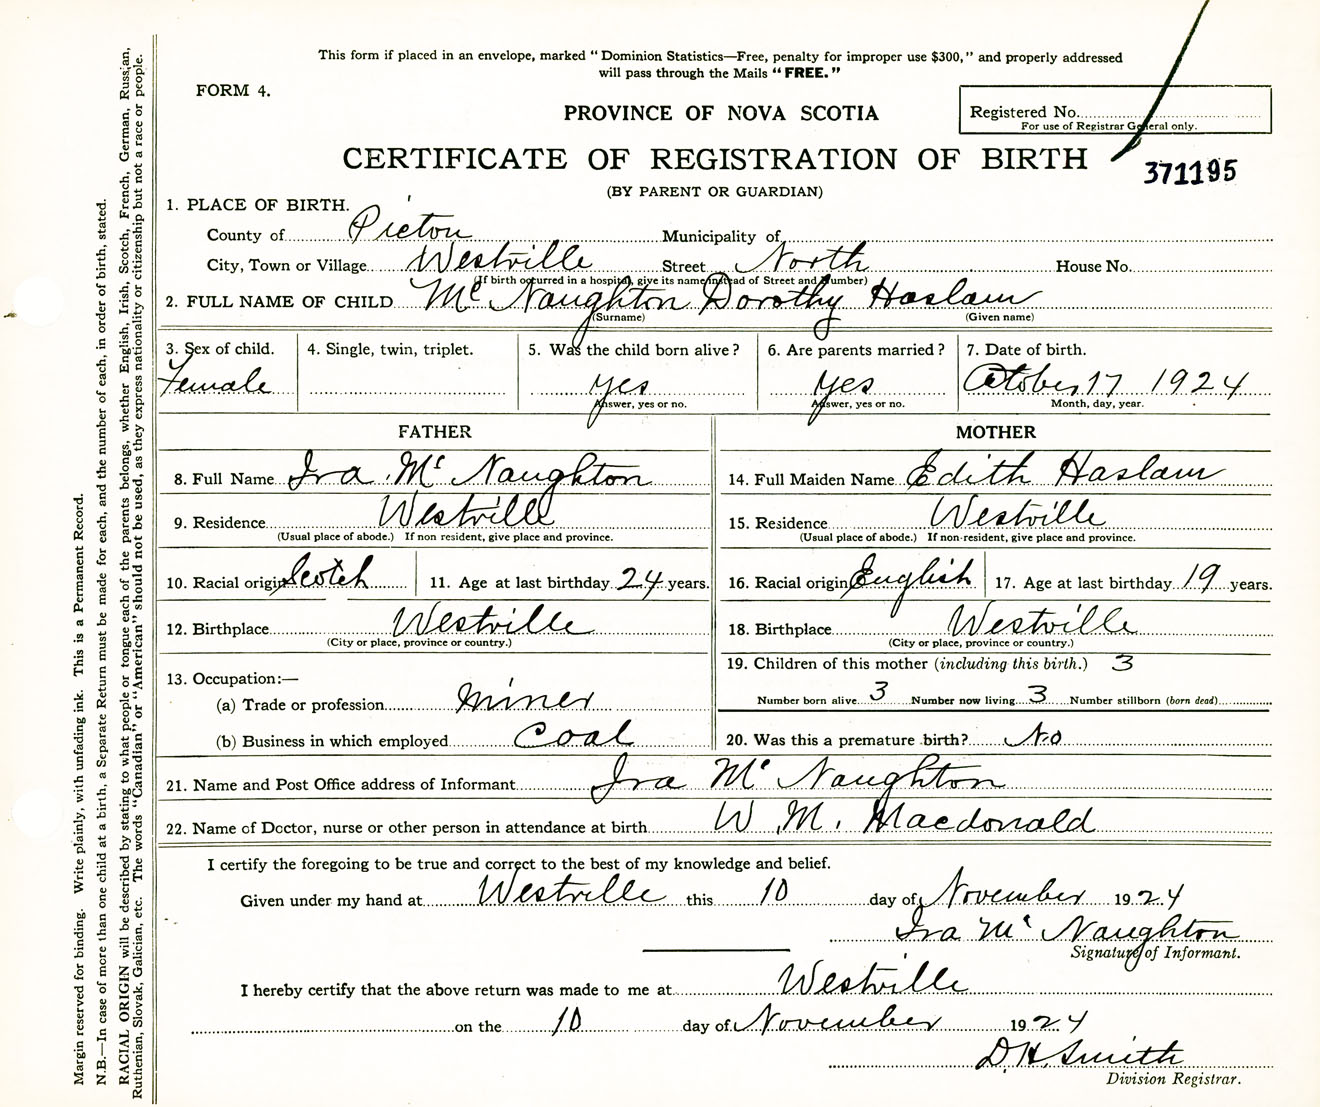 This form if placed in an envelope, marked “Dominion Statistics—Free, penalty for improper use $300,” and properly addressed
will pass through the Mails “FREE.”
FORM 4.
PROVINCE OF NOVA SCOTIA
Registered No.
For use of Registrar General only.
CERTIFICATE OF REGISTRATION OF BIRTH
371195
(BY PARENT OR GUARDIAN)
1. PLACE OF BIRTH.
County of Pictou Municipality of
City, Town or Village Westville Street North House No.
(If birth occurred in a hospital, give its name instead of Street and Number)
2. FULL NAME OF CHILD Mc Naughton Dorothy Haslam
(Surname) (Given name)
3. Sex of child. 4. Single, twin, triplet. 5. Was the child born alive? 6. Are parents married? 7. Date of birth.
Female yes yes October 17 1924
Answer, yes or no. Answer, yes or no. Month, day, year.
FATHER MOTHER
8. Full Name Ira Mc Naughton 14. Full Maiden Name Edith Haslam
9. Residence Westville 15. Residence Westville
(Usual place of abode.) If non resident, give place and province. (Usual place of abode.) If non-resident, give place and province.
10. Racial origin Scotch 11. Age at last birthday 24 years. 16. Racial origin English 17. Age at last birthday 19 years.
12. Birthplace Westville 18. Birthplace Westville
(City or place, province or country.) (City or place, province or country.)
19. Children of this mother (including this birth.) 3
13. Occupation:—
(a) Trade or profession miner Number born alive 3 Number now living 3 Number stillborn (born dead)
(b) Business in which employed Coal 20. Was this a premature birth? No
21. Name and Post Office address of Informant Ira Mc Naughton
22. Name of Doctor, nurse or other person in attendance at birth W. M. Macdonald
I certify the foregoing to be true and correct to the best of my knowledge and belief.
Given under my hand at Westville this 10 day of November 1924
Ira Mc Naughton
Signature of Informant.
I hereby certify that the above return was made to me at Westville
on the 10 day of November 1924
D. H. Smith
Division Registrar.
Margin reserved for binding. Write plainly, with unfading ink. This is a Permanent Record.
N.B.—In case of more than one child at a birth, a Separate Return must be made for each, and the number of each, in order of birth, stated.
RACIAL ORIGIN will be described by stating to what people or tongue each of the parents belongs, whether English, Irish, Scotch, French, German, Russian,
Ruthenian, Slovak, Galician, etc. The words “Canadian” or “American” should not be used, as they express nationality or citizenship but not a race or people.